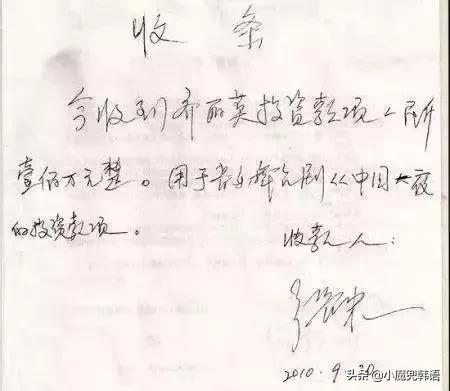 收 条
今收到乔丽英投资款项人民币
壹佰万元整。用于音乐舞台剧《中国之夜
的投资款项。
收款人：
2010.9.20
头条@小魔兜韩语